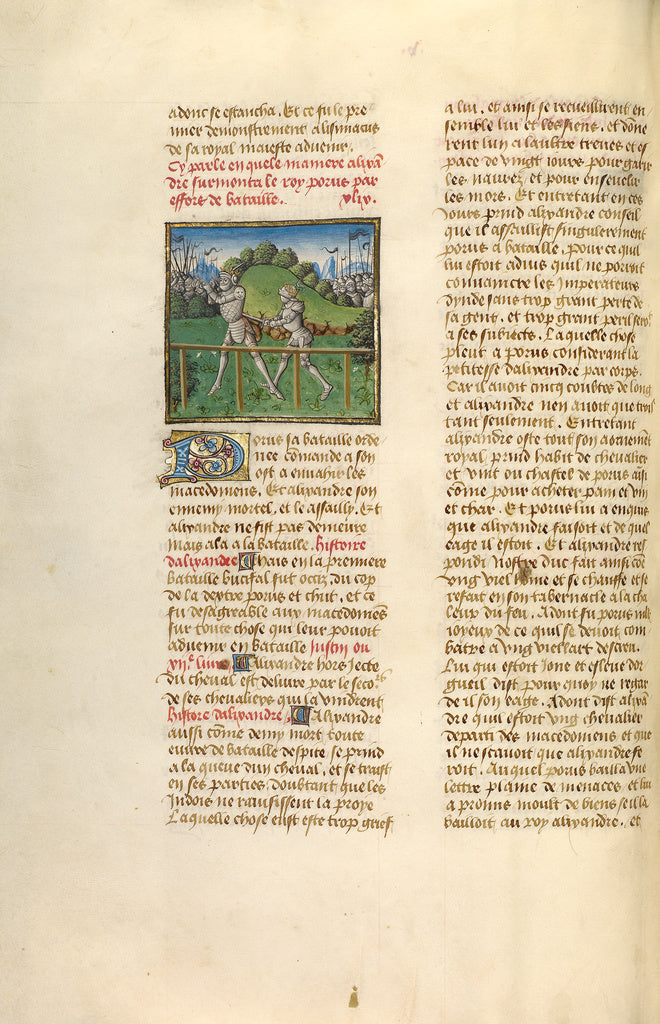 adonc se estancha. Et ce fu le pre
mier demonstrement a lisimacus
de sa royal maieste advenir.
Cy parle en quele maniere alixã
dre surmonta le roy porus par
effors de bataille. xlix.
Porus sa bataille orde
nee cõmande a son
ost a envahir les
macedoniens. Et alixandre son
ennemy mortel, et le assailly. Et
alixandre ne fist pas demeure
mais ala a la bataille. histoire
dalixandre Mais en la premiere
bataille bucifal fut occiz du cop
de la dextre porus et chut, et ce
fu desagreable aux macedoniẽs
sur toute chose qui leur pouoit
advenir en bataille Justin ou
xiie livre Alixandre hors jecte
du cheval est delivre par le secors
de ses chevaliers qui la vindrent
histoire dalixandre. Alixandre
aussi cõme demy mort toute
euvre de bataille despite se prind
a la queue dun cheval, et se traist
en ses parties doubtant que les
Indois ne ravississent la proye
Laquelle chose eust este trop grief
a lui. et ainsi se recueillirent en
semble lui et les siens. et dõne
rent lun a laultre treves et es
pace de vingt iours pour garir
les navrez et pour ensevelir
les mors. Et entretant en ces
iours prind alixandre conseil
que il assaillist singulierement
porus a bataille. pour ce quil
lui estoit advis quil ne porroit
convaincre les Imperateurs
dynde sans trop grant perte de
sa gent. et trop grant peril
a ses subiects. Laquelle chose
pleut a porus considerant la
petitesse dalixandre par corps.
Car il avoit cincq coubtes de long
et alixandre nen avoit que trois
tant seulement. Entretant
alixandre oste tout son aornement
royal prind habit de chevalier
et vint ou chastel de porus aussi
cõme pour acheter pain et vin
et char. Et porus lui a enquis
que alixandre faisoit et de quel
eage il estoit. Et alixandre res
pondi Nostre duc fait ainsi cõe
ung viel hõme et se chauffe et se
refait en son tabernacle a la cha
leur du feu. Adont fu porus
ioyeux de ce quil se devoit com
batre a ung vieillart descreu.
Lui qui estoit jone et esleve dor
gueil dist pour quoy ne regar
de il son eage. Adont dist alixã
dre quil estoit ung chevalier
departi des macedoniens et que
il ne scavoit que alixandre fe
roit. Auquel porus bailla une
lettre plaine de menaces et lui
a promis moult de biens se il la
bailloit au roy alixandre. et